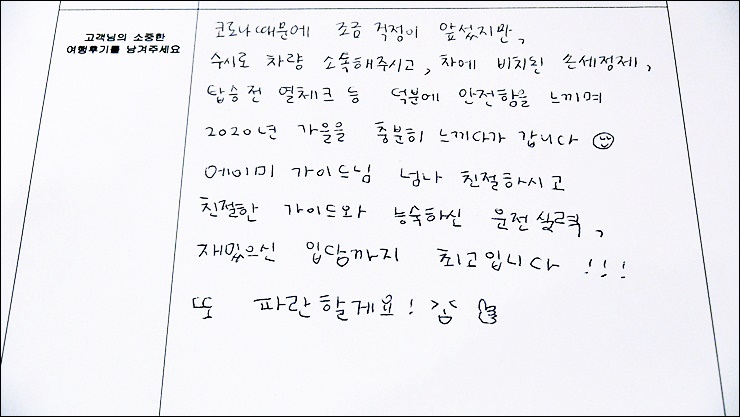 고객님의 소중한
여행후기를 남겨주세요
코로나 때문에 조금 걱정이 앞섰지만,
수시로 차량 소독해주시고, 차에 비치된 손세정제,
탑승 전 열체크 등 덕분에 안전함을 느끼며
2020년 가을을 충분히 느끼다가 갑니다
에이미 가이드님 넘나 친절하시고
친절한 가이드와 능숙하신 운전실력,
재밌으신 입담까지 최고입니다 !!!
또 파란할게요!